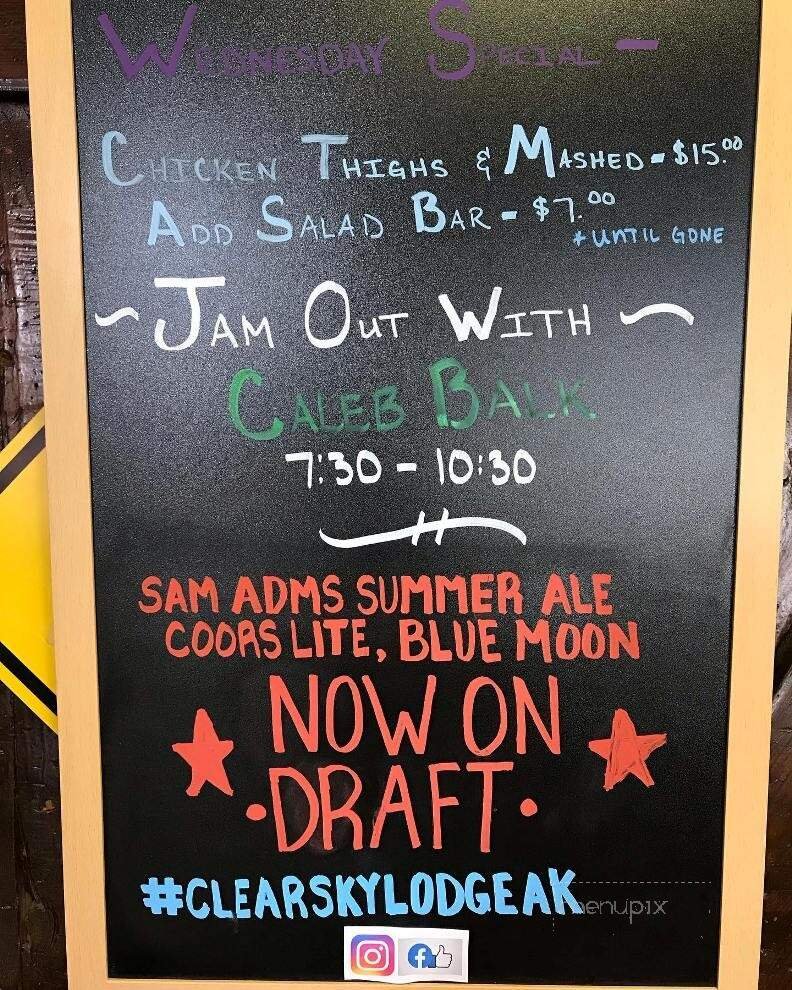 WEDNESDAY SPECIAL -
CHICKEN THIGHS & MASHED - $15.00
ADD SALAD BAR - $7.00
* UNTIL GONE
~ JAM OUT WITH ~
CALEB BALK
7:30 - 10:30
SAM ADMS SUMMER ALE
COORS LITE, BLUE MOON
NOW ON
·DRAFT·
#CLEARSKYLODGEAK
menupix